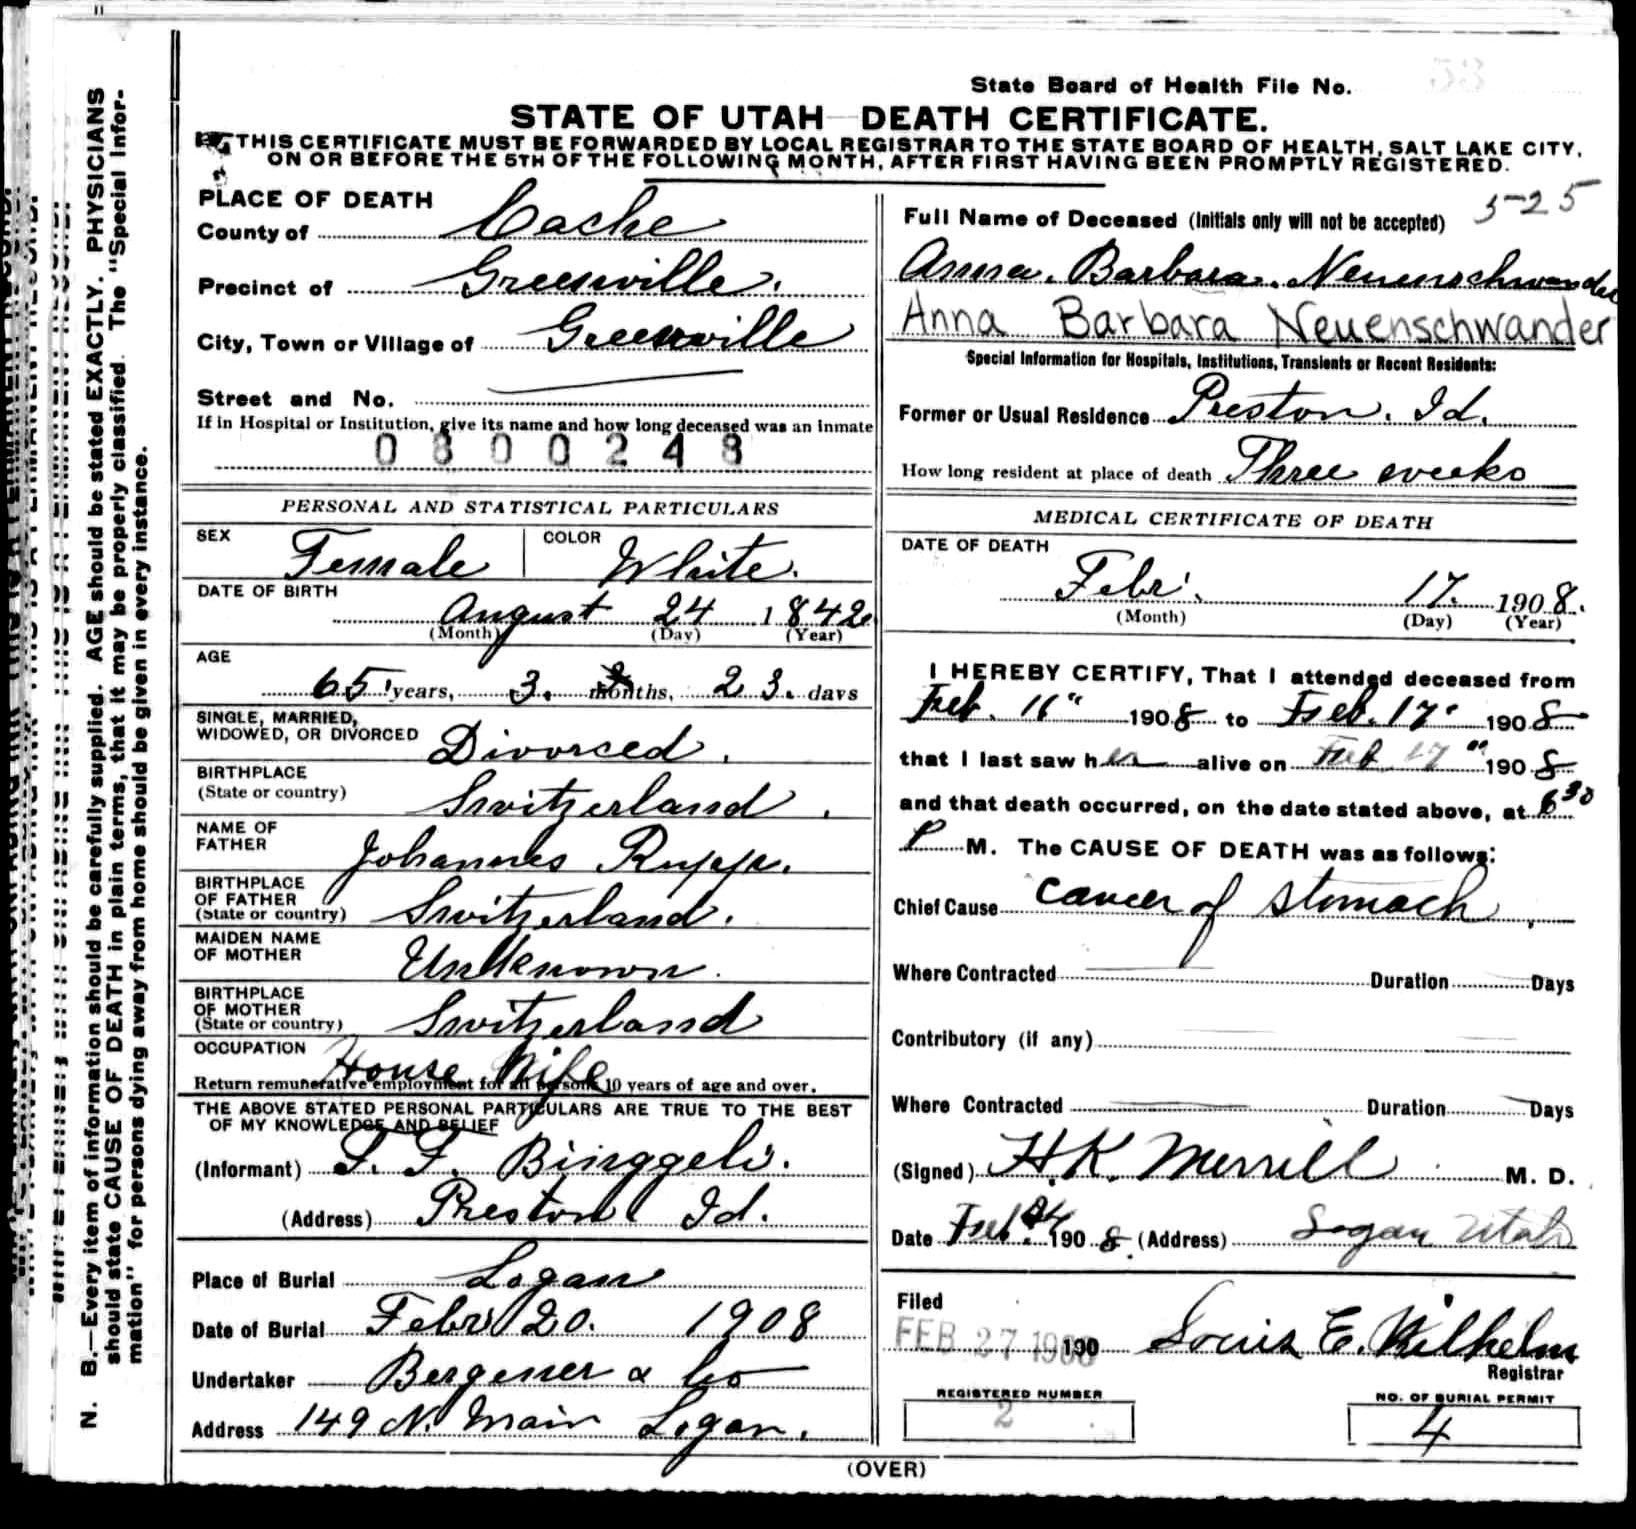 State Board of Health File No. 53
STATE OF UTAH—DEATH CERTIFICATE.
THIS CERTIFICATE MUST BE FORWARDED BY LOCAL REGISTRAR TO THE STATE BOARD OF HEALTH, SALT LAKE CITY,
ON OR BEFORE THE 5TH OF THE FOLLOWING MONTH, AFTER FIRST HAVING BEEN PROMPTLY REGISTERED.
PLACE OF DEATH
County of Cache
Precinct of Greenville.
City, Town or Village of Greenville
Street and No.
If in Hospital or Institution, give its name and how long deceased was an inmate
0800248
PERSONAL AND STATISTICAL PARTICULARS
SEX Female COLOR White.
DATE OF BIRTH
August 24 1842
(Month) (Day) (Year)
AGE
65 years, 3. months, 23. days
SINGLE, MARRIED,
WIDOWED, OR DIVORCED Divorced.
BIRTHPLACE
(State or country) Switzerland.
NAME OF
FATHER Johannes Rupp.
BIRTHPLACE
OF FATHER
(State or country) Switzerland.
MAIDEN NAME
OF MOTHER Unknown.
BIRTHPLACE
OF MOTHER
(State or country) Switzerland
OCCUPATION House Wife
Return remunerative employment for all persons 10 years of age and over.
THE ABOVE STATED PERSONAL PARTICULARS ARE TRUE TO THE BEST
OF MY KNOWLEDGE AND BELIEF
(Informant) F. Binggeli.
(Address) Preston Id.
Place of Burial Logan
Date of Burial Febr 20. 1908
Undertaker & Co
Address 149 N. Main Logan.
Full Name of Deceased (Initials only will not be accepted) 525
Anna. Barbara. Neuenschwander
Anna Barbara Neuenschwander
Special Information for Hospitals, Institutions, Transients or Recent Residents:
Former or Usual Residence Preston. Id.
How long resident at place of death Three weeks
MEDICAL CERTIFICATE OF DEATH
DATE OF DEATH
Febr. 17. 1908.
(Month) (Day) (Year)
I HEREBY CERTIFY, That I attended deceased from
Feb. 11" 1908 to Feb. 17" 1908
that I last saw her alive on Feb 17" 1908
and that death occurred, on the date stated above, at 6 30
P M. The CAUSE OF DEATH was as follows:
Chief Cause cancer of stomach,
Where Contracted Duration Days
Contributory (if any)
Where Contracted Duration Days
(Signed) H.K. Merrill M. D.
Date Feb. 24 1908. (Address) Logan Utah
Filed
FEB 27 1908 190 Louis E. Wilhelm
Registrar
REGISTERED NUMBER
2
NO. OF BURIAL PERMIT
4
(OVER)
N. B.—Every item of information should be carefully supplied. AGE should be stated EXACTLY. PHYSICIANS
should state CAUSE OF DEATH in plain terms, that it may be properly classified. The "Special Infor-
mation" for persons dying away from home should be given in every instance.